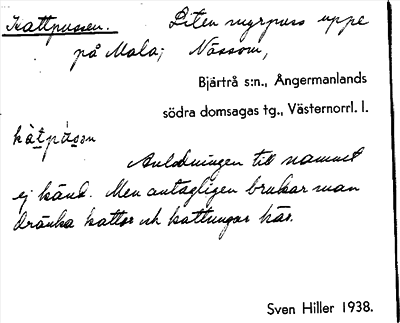 Kattpussen. Liten myrpuss uppe
på Mala; Nässom,
Bjärtrå s:n., Ångermanlands
södra domsagas tg., Västernorrl. l.
kàtpùsən
Anledningen till namnet
ej känd. Men antagligen brukar man
dränka kattor och kattungar här.
Sven Hiller 1938.